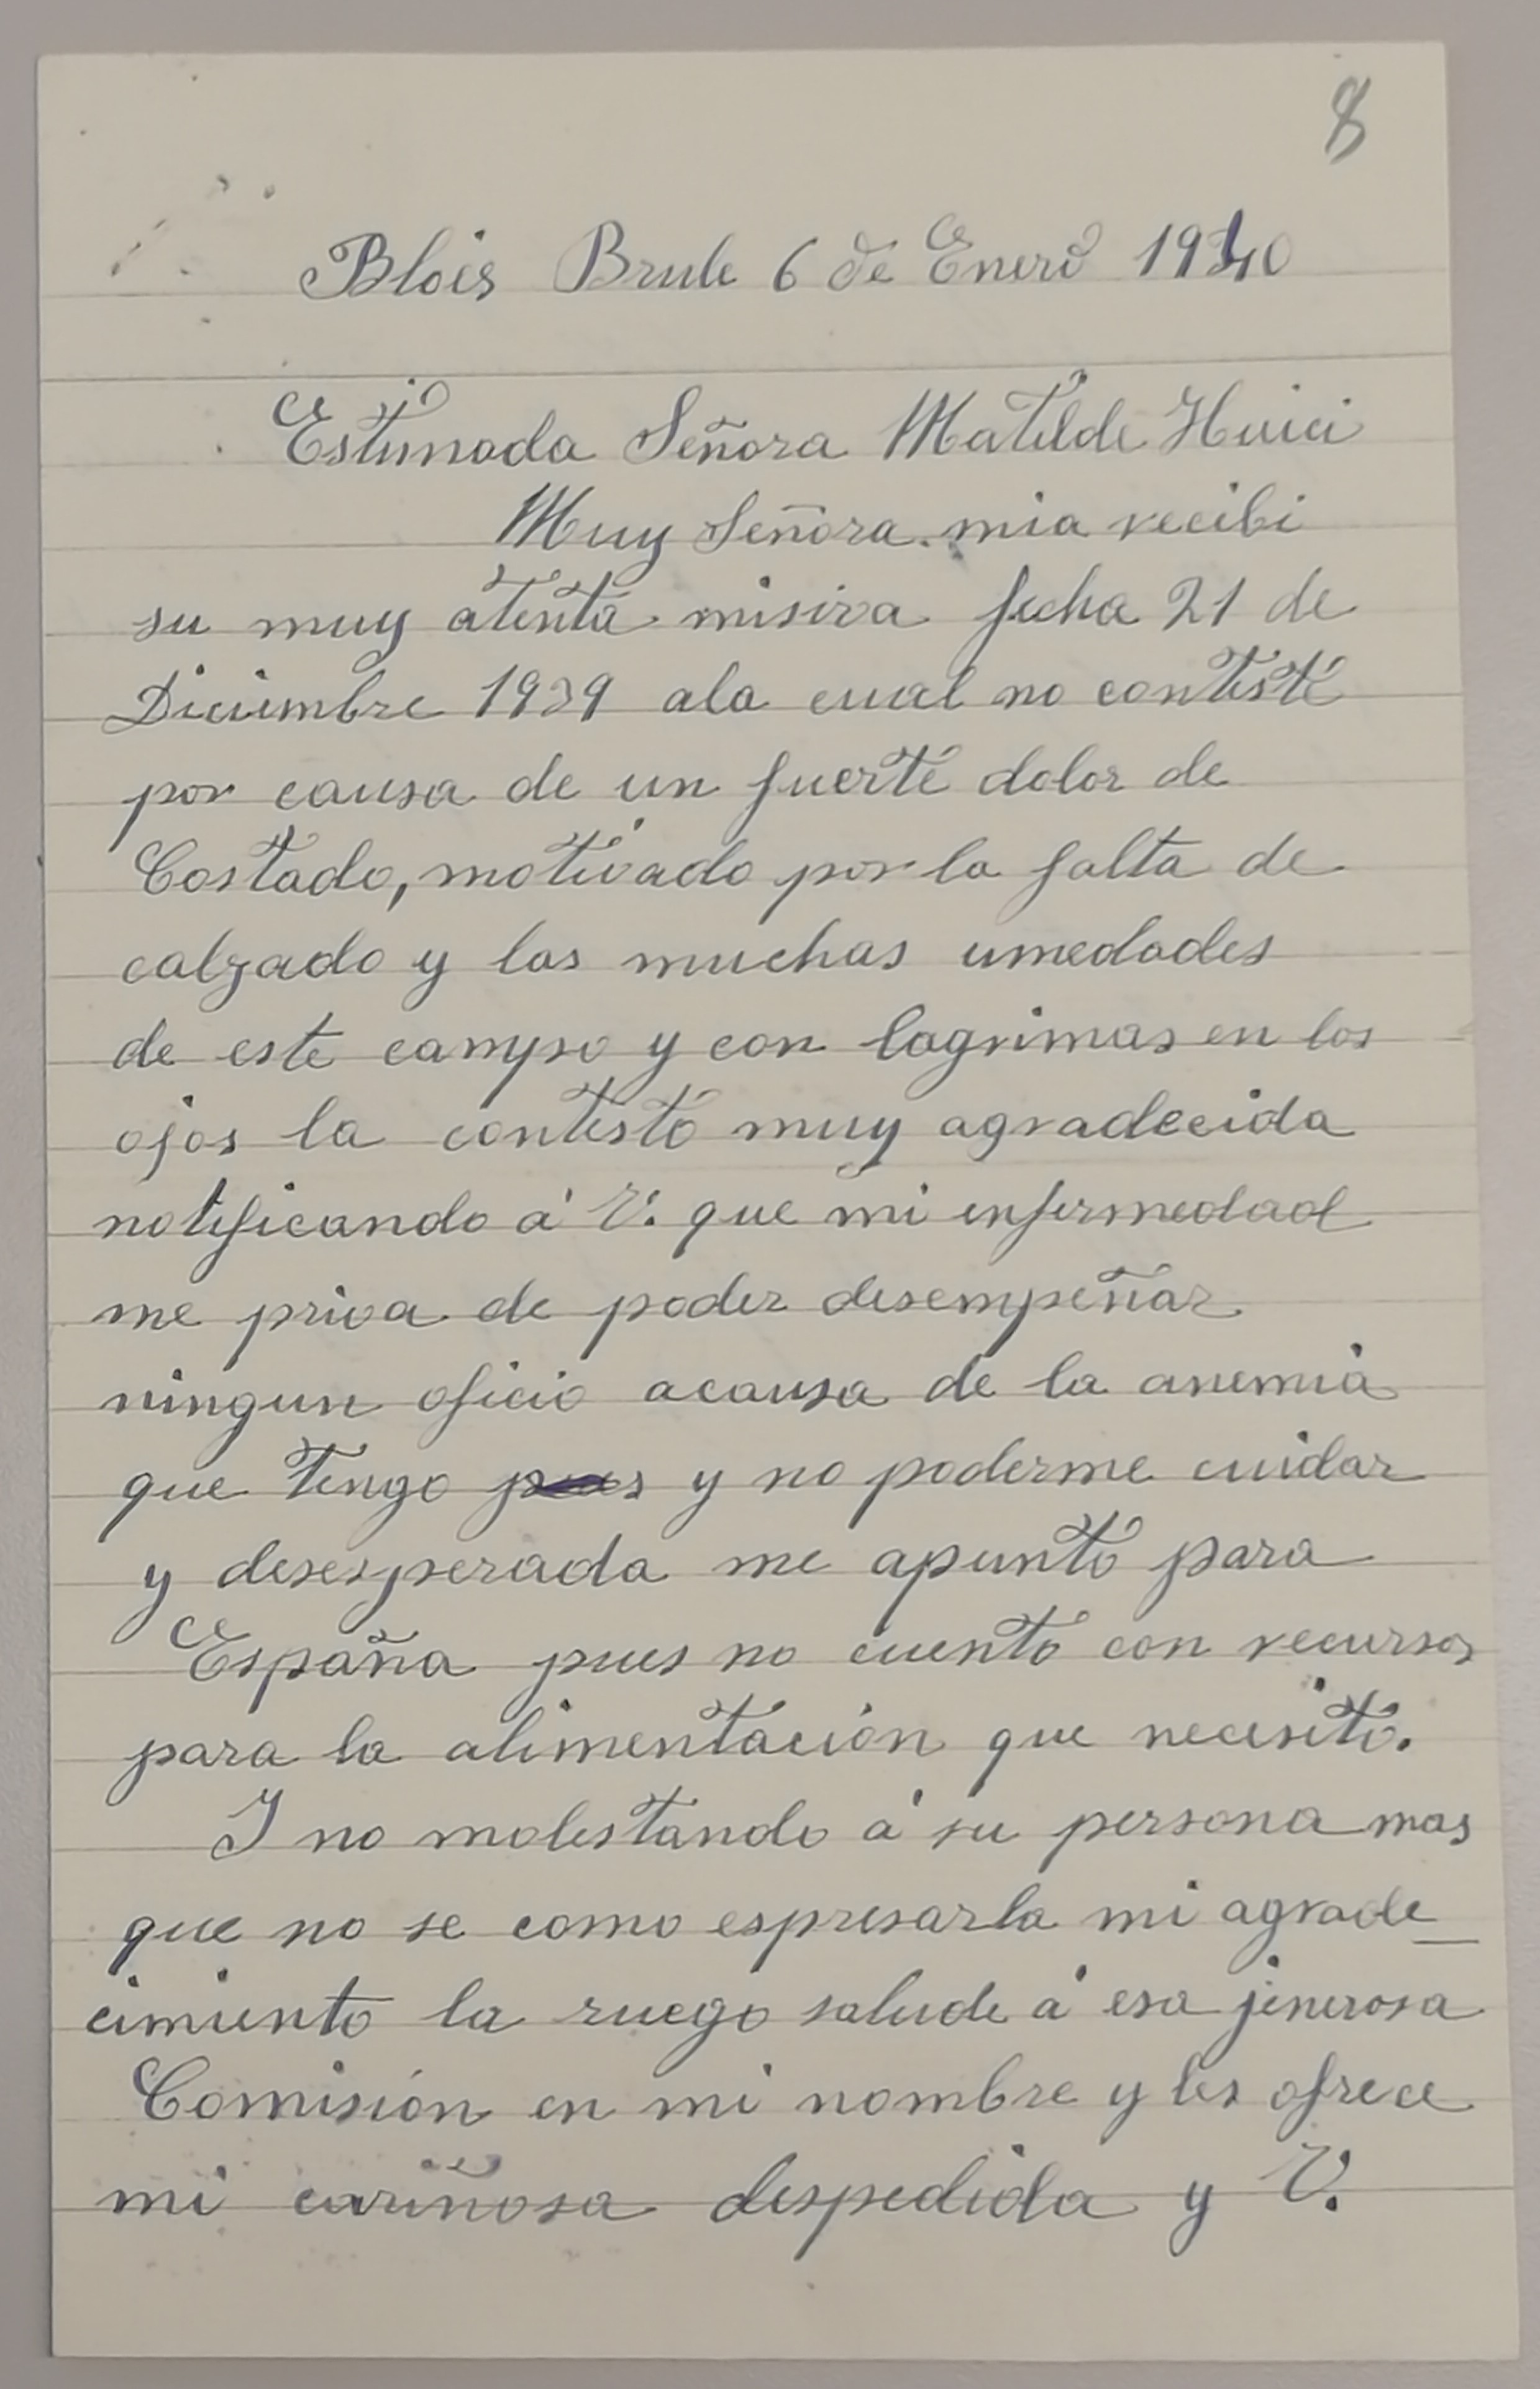 8
Blois Brule 6 de Enero 1940
Estimada Señora Matilde Huici
Muy Señora mia recibi
su muy atenta misiva fecha 21 de
Diciembre 1939 ala cual no contesté
por causa de un fuerte dolor de
Costado, motivado por la falta de
calzado y las muchas umedades
de este campo y con lagrimas en los
ojos la contesto muy agradecida
notificando á V. que mi enfermedad
me priva de poder desempeñar
ningun oficio acausa de la anemia
que tengo pues y no poderme cuidar
y desesperada me apunto para
España pues no cuento con recursos
para la alimentación que necesito.
I no molestando á su persona mas
que no se como espresarla mi agrade
cimiento la ruego salude á esa jenerosa
Comisión en mi nombre y les ofrece
mi cariñosa despedida y V.